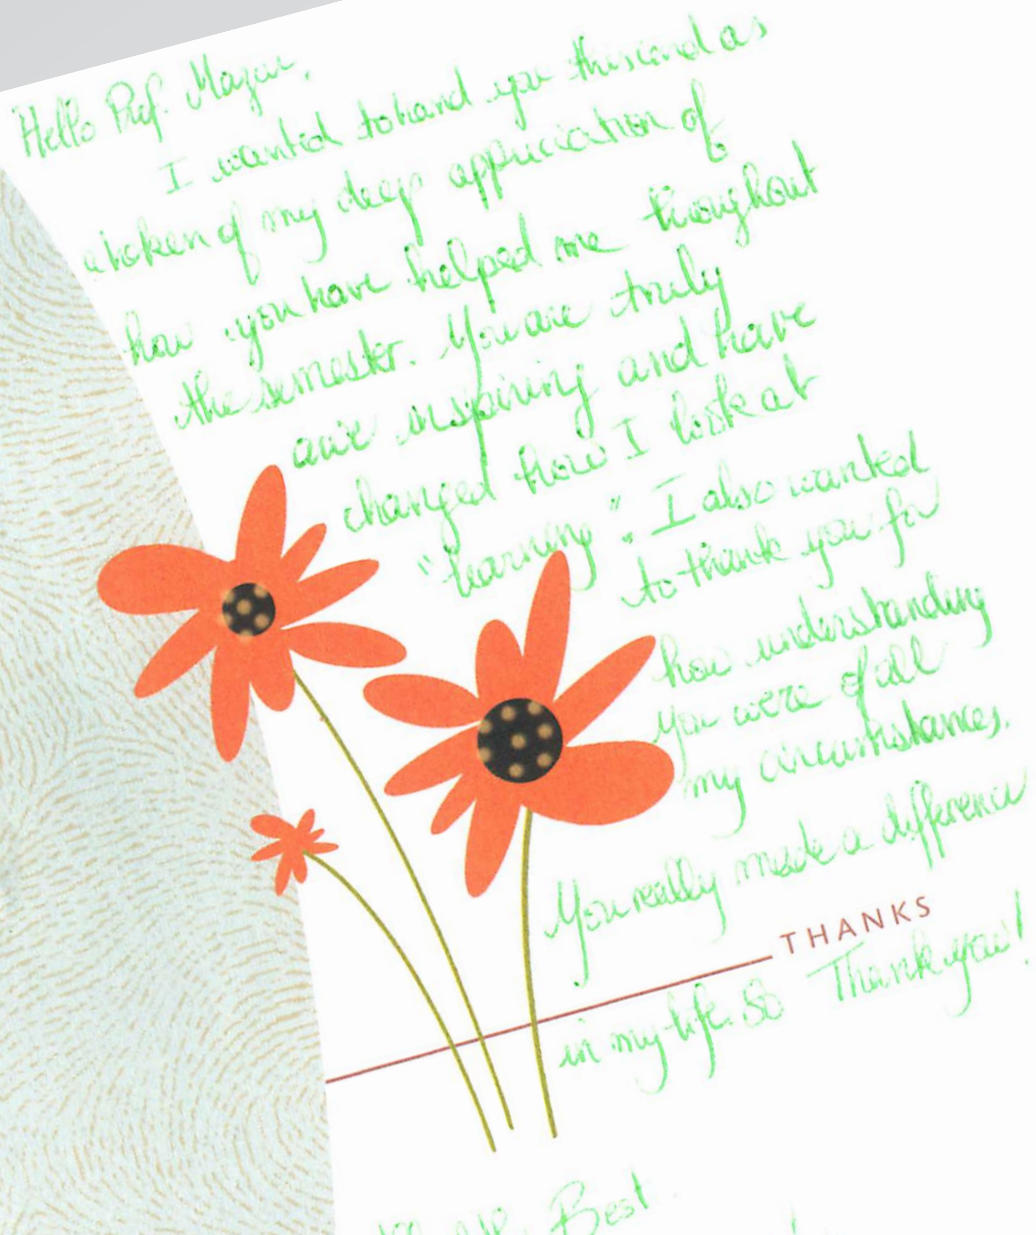 Hello Prof. Mazur,
I wanted to hand you this card as
a token of my deep appreciation of
how you have helped me throughout
the semester. You are truly
awe inspiring and have
changed how I look at
"learning". I also wanted
to thank you for
how understanding
you were of all
my circumstances.
You really made a difference
THANKS
in my life. So Thank you!
Best